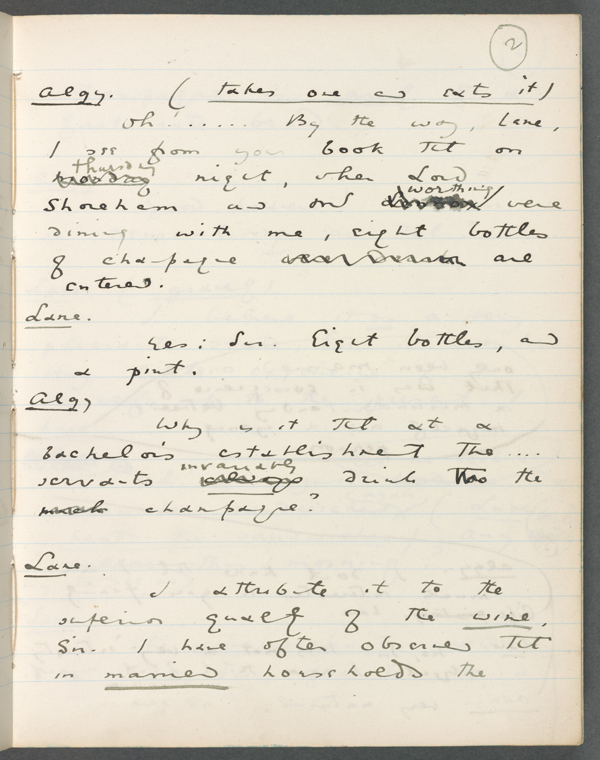 2
Algy. (takes one and eats it)
Oh! ...... By the way, Lane,
I see from your book that on
Thursday
night, when Lord
Worthing
Shoreham and Mr were
dining with me, eight bottles
of champagne are
entered.
Lane.
Yes: Sir. Eight bottles, and
a pint.
Algy
Why is it that at a
bachelor's establishment the....
invariably
servants always drink the
much champagne?
Lane.
I attribute it to the
superior quality of the wine,
Sir. I have often observed that
in married households the